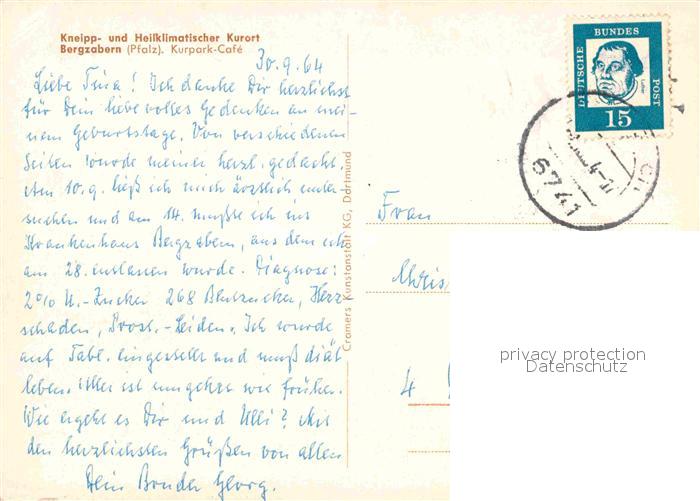 Kneipp- und Heilklimatischer Kurort
Bergzabern (Pfalz). Kurpark-Café
30.9.64
Liebe Tina! Ich danke Dir herzlichst
für Dein liebevolles Gedenken an mei-
nem Geburtstage. Von verschiedenen
Seiten wurde meiner herzl. gedacht.
Am 10.9. ließ ich mich ärztlich unter
suchen und am 14. mußte ich ins
Krankenhaus Bergzabern, aus dem ich
am 28. entlassen wurde. Diagnose:
2% U.-Zucker 268 Blutzucker, Herz
schaden, Prost.-Leiden. Ich wurde
auf Tabl. eingestellt und muß diät
leben. Alles ist umgekehrt wie früher.
Wie ergeht es Dir und Ulli? Mit
den herzlichsten Grüßen von allen
Dein Bruder Georg.
Cramers Kunstanstalt KG, Dortmund
DEUTSCHE
BUNDES
POST
Luther
15
6741
Frau
Chris
4
privacy protection
Datenschutz